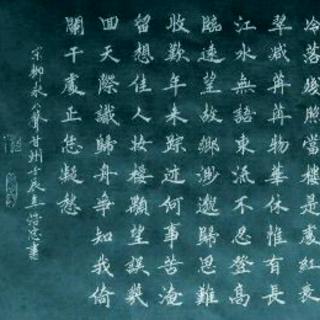 冷落残照當樓是處紅衰
翠減苒苒物華休惟有長
江水無語東流不忍登高
臨遠望故鄉渺邈歸思難
收歎年来踪迹何事苦淹
留想佳人妝樓顒望誤幾
回天際識歸舟爭知我倚
闌干處正恁凝愁
宋柳永八聲甘州壬辰書